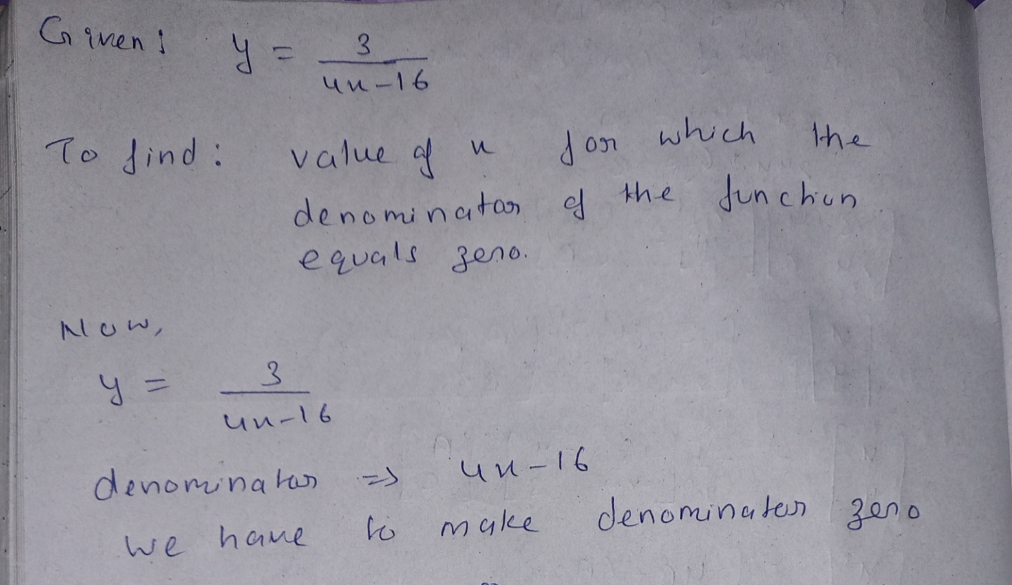 Given: y = 3
4x-16
To find: value of x for which the
denominator of the function
equals zero.
Now,
y = 3
4x-16
denominator => 4x-16
We have to make denominator zero